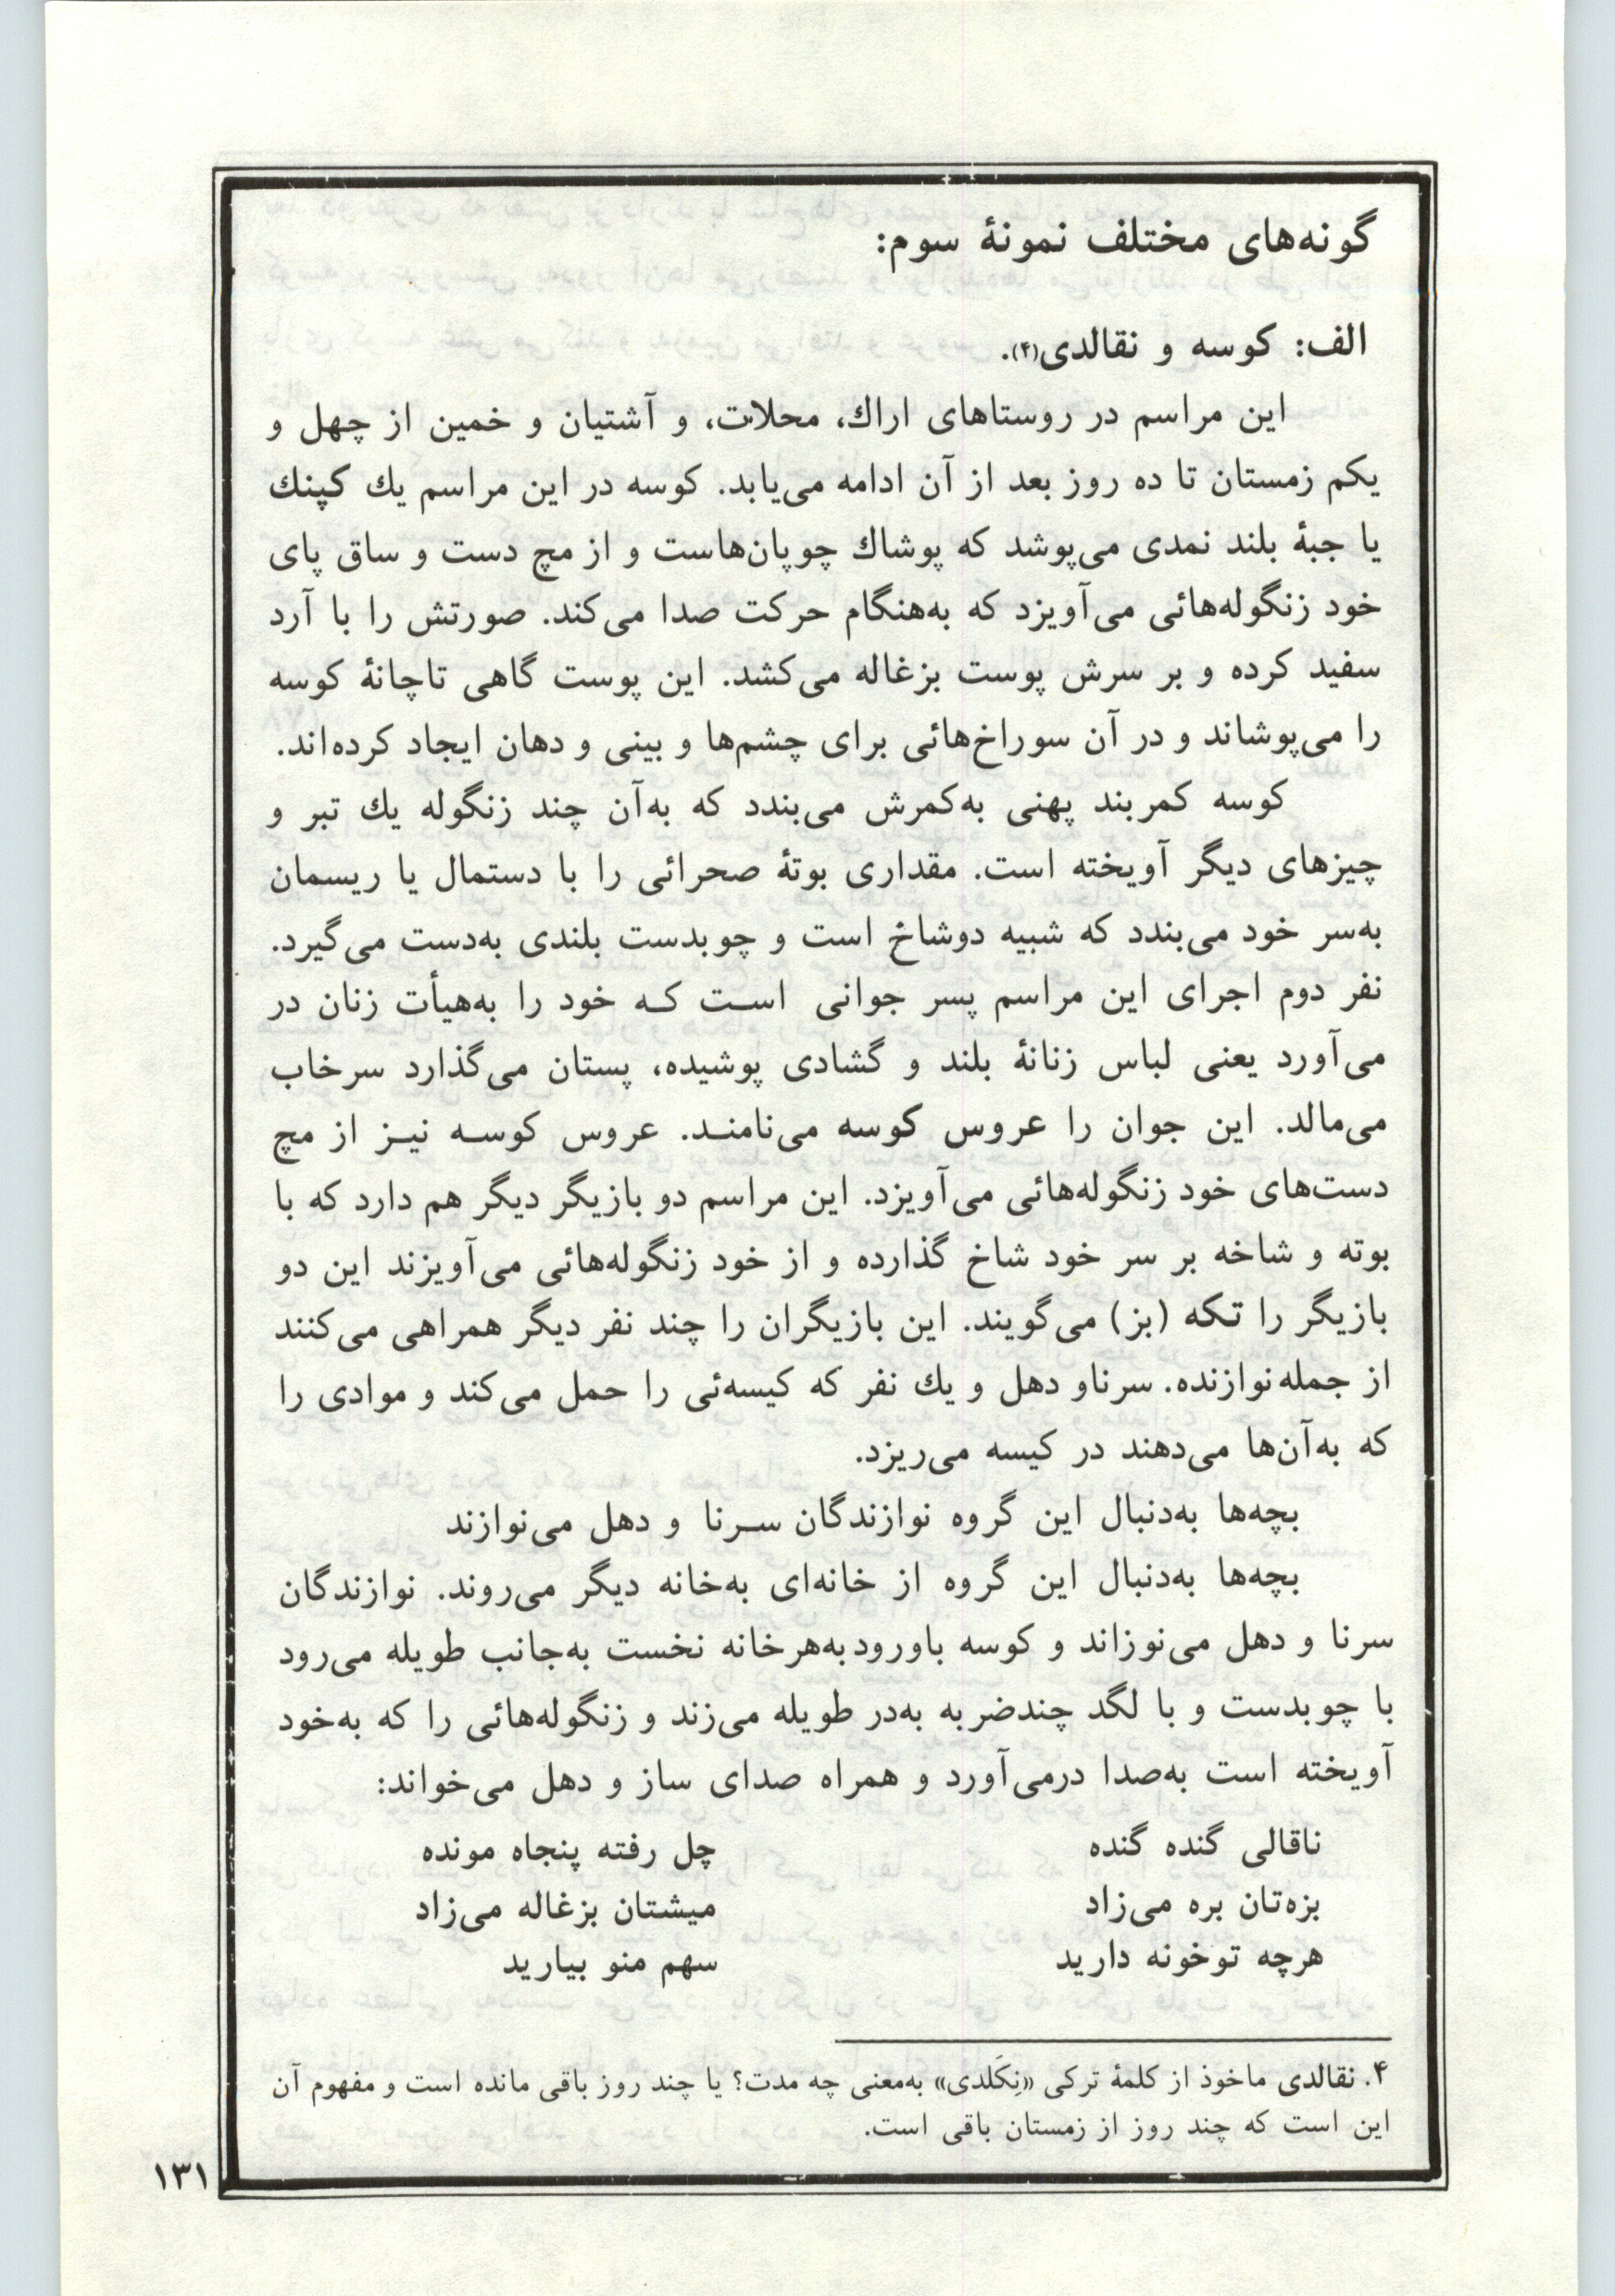 گونه‌های مختلف نمونهٔ سوم:
الف: کوسه و نقالدی(۴).
این مراسم در روستاهای اراك، محلات، و آشتیان و خمین از چهل و
یکم زمستان تا ده روز بعد از آن ادامه می‌یابد. کوسه در این مراسم یك کپنك
یا جبهٔ بلند نمدی می‌پوشد که پوشاك چوپان‌هاست و از مچ دست و ساق پای
خود زنگوله‌هائی می‌آویزد که به‌هنگام حرکت صدا می‌کند. صورتش را با آرد
سفید کرده و بر سرش پوست بزغاله می‌کشد. این پوست گاهی تاچانهٔ کوسه
را می‌پوشاند و در آن سوراخ‌هائی برای چشم‌ها و بینی و دهان ایجاد کرده‌اند.
کوسه کمربند پهنی به‌کمرش می‌بندد که به‌آن چند زنگوله یك تبر و
چیزهای دیگر آویخته است. مقداری بوتهٔ صحرائی را با دستمال یا ریسمان
به‌سر خود می‌بندد که شبیه دوشاخ است و چوبدست بلندی به‌دست می‌گیرد.
نفر دوم اجرای این مراسم پسر جوانی است که خود را به‌هیأت زنان در
می‌آورد یعنی لباس زنانهٔ بلند و گشادی پوشیده، پستان می‌گذارد سرخاب
می‌مالد. این جوان را عروس کوسه می‌نامند. عروس کوسه نیز از مچ
دست‌های خود زنگوله‌هائی می‌آویزد. این مراسم دو بازیگر دیگر هم دارد که با
بوته و شاخه بر سر خود شاخ گذارده و از خود زنگوله‌هائی می‌آویزند این دو
بازیگر را تکه (بز) می‌گویند. این بازیگران را چند نفر دیگر همراهی می‌کنند
از جمله نوازنده. سرناو دهل و یك نفر که کیسه‌ئی را حمل می‌کند و موادی را
که به‌آن‌ها می‌دهند در کیسه می‌ریزد.
بچه‌ها به‌دنبال این گروه نوازندگان سرنا و دهل می‌نوازند
بچه‌ها به‌دنبال این گروه از خانه‌ای به‌خانه دیگر می‌روند. نوازندگان
سرنا و دهل می‌نوزاند و کوسه باورود به‌هرخانه نخست به‌جانب طویله می‌رود
با چوبدست و با لگد چندضربه به‌در طویله می‌زند و زنگوله‌هائی را که به‌خود
آویخته است به‌صدا درمی‌آورد و همراه صدای ساز و دهل می‌خواند:
ناقالی گنده گنده چل رفته پنجاه مونده
بزه‌تان بره می‌زاد میشتان بزغاله می‌زاد
هرچه توخونه دارید سهم منو بیارید
۴. نقالدی ماخوذ از کلمهٔ ترکی «نِکَلدی» به‌معنی چه مدت؟ یا چند روز باقی مانده است و مفهوم آن
این است که چند روز از زمستان باقی است.
۱۳۱